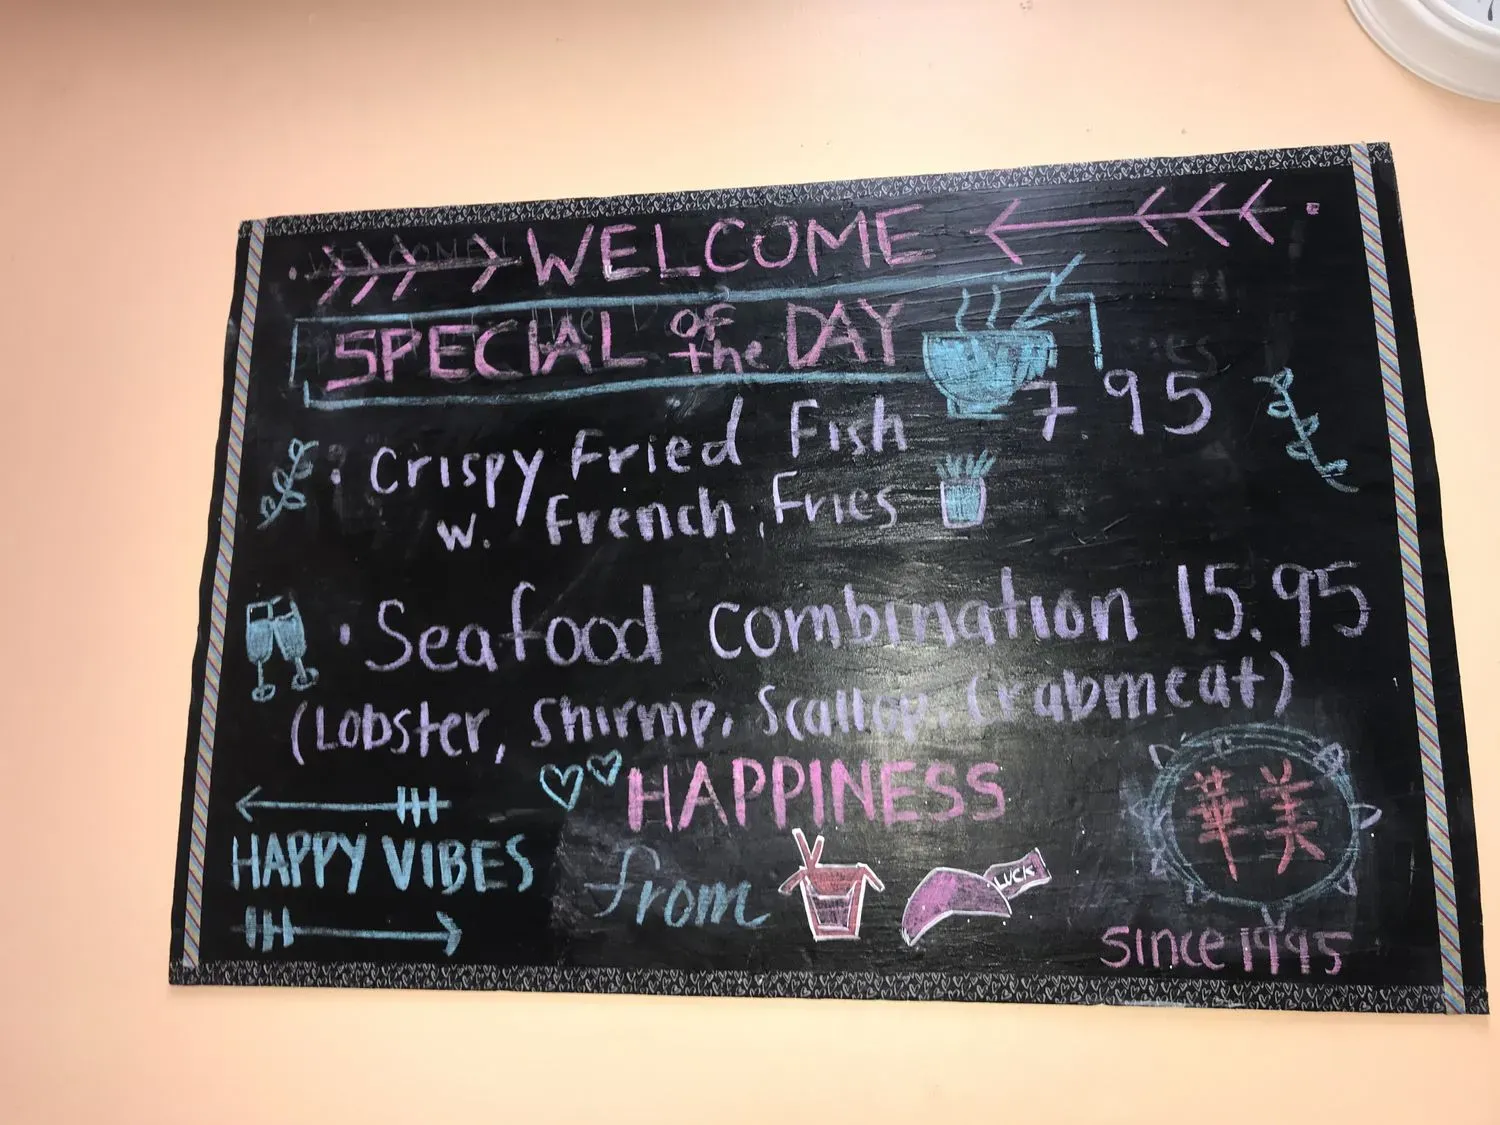 WELCOME
SPECIAL of the DAY
• Crispy Fried Fish 7.95
w. French Fries
• Seafood combination 15.95
(Lobster, Shirmp, Scallop, Crabmeat)
HAPPINESS
HAPPY VIBES
from
LUCK
華美
Since 1995